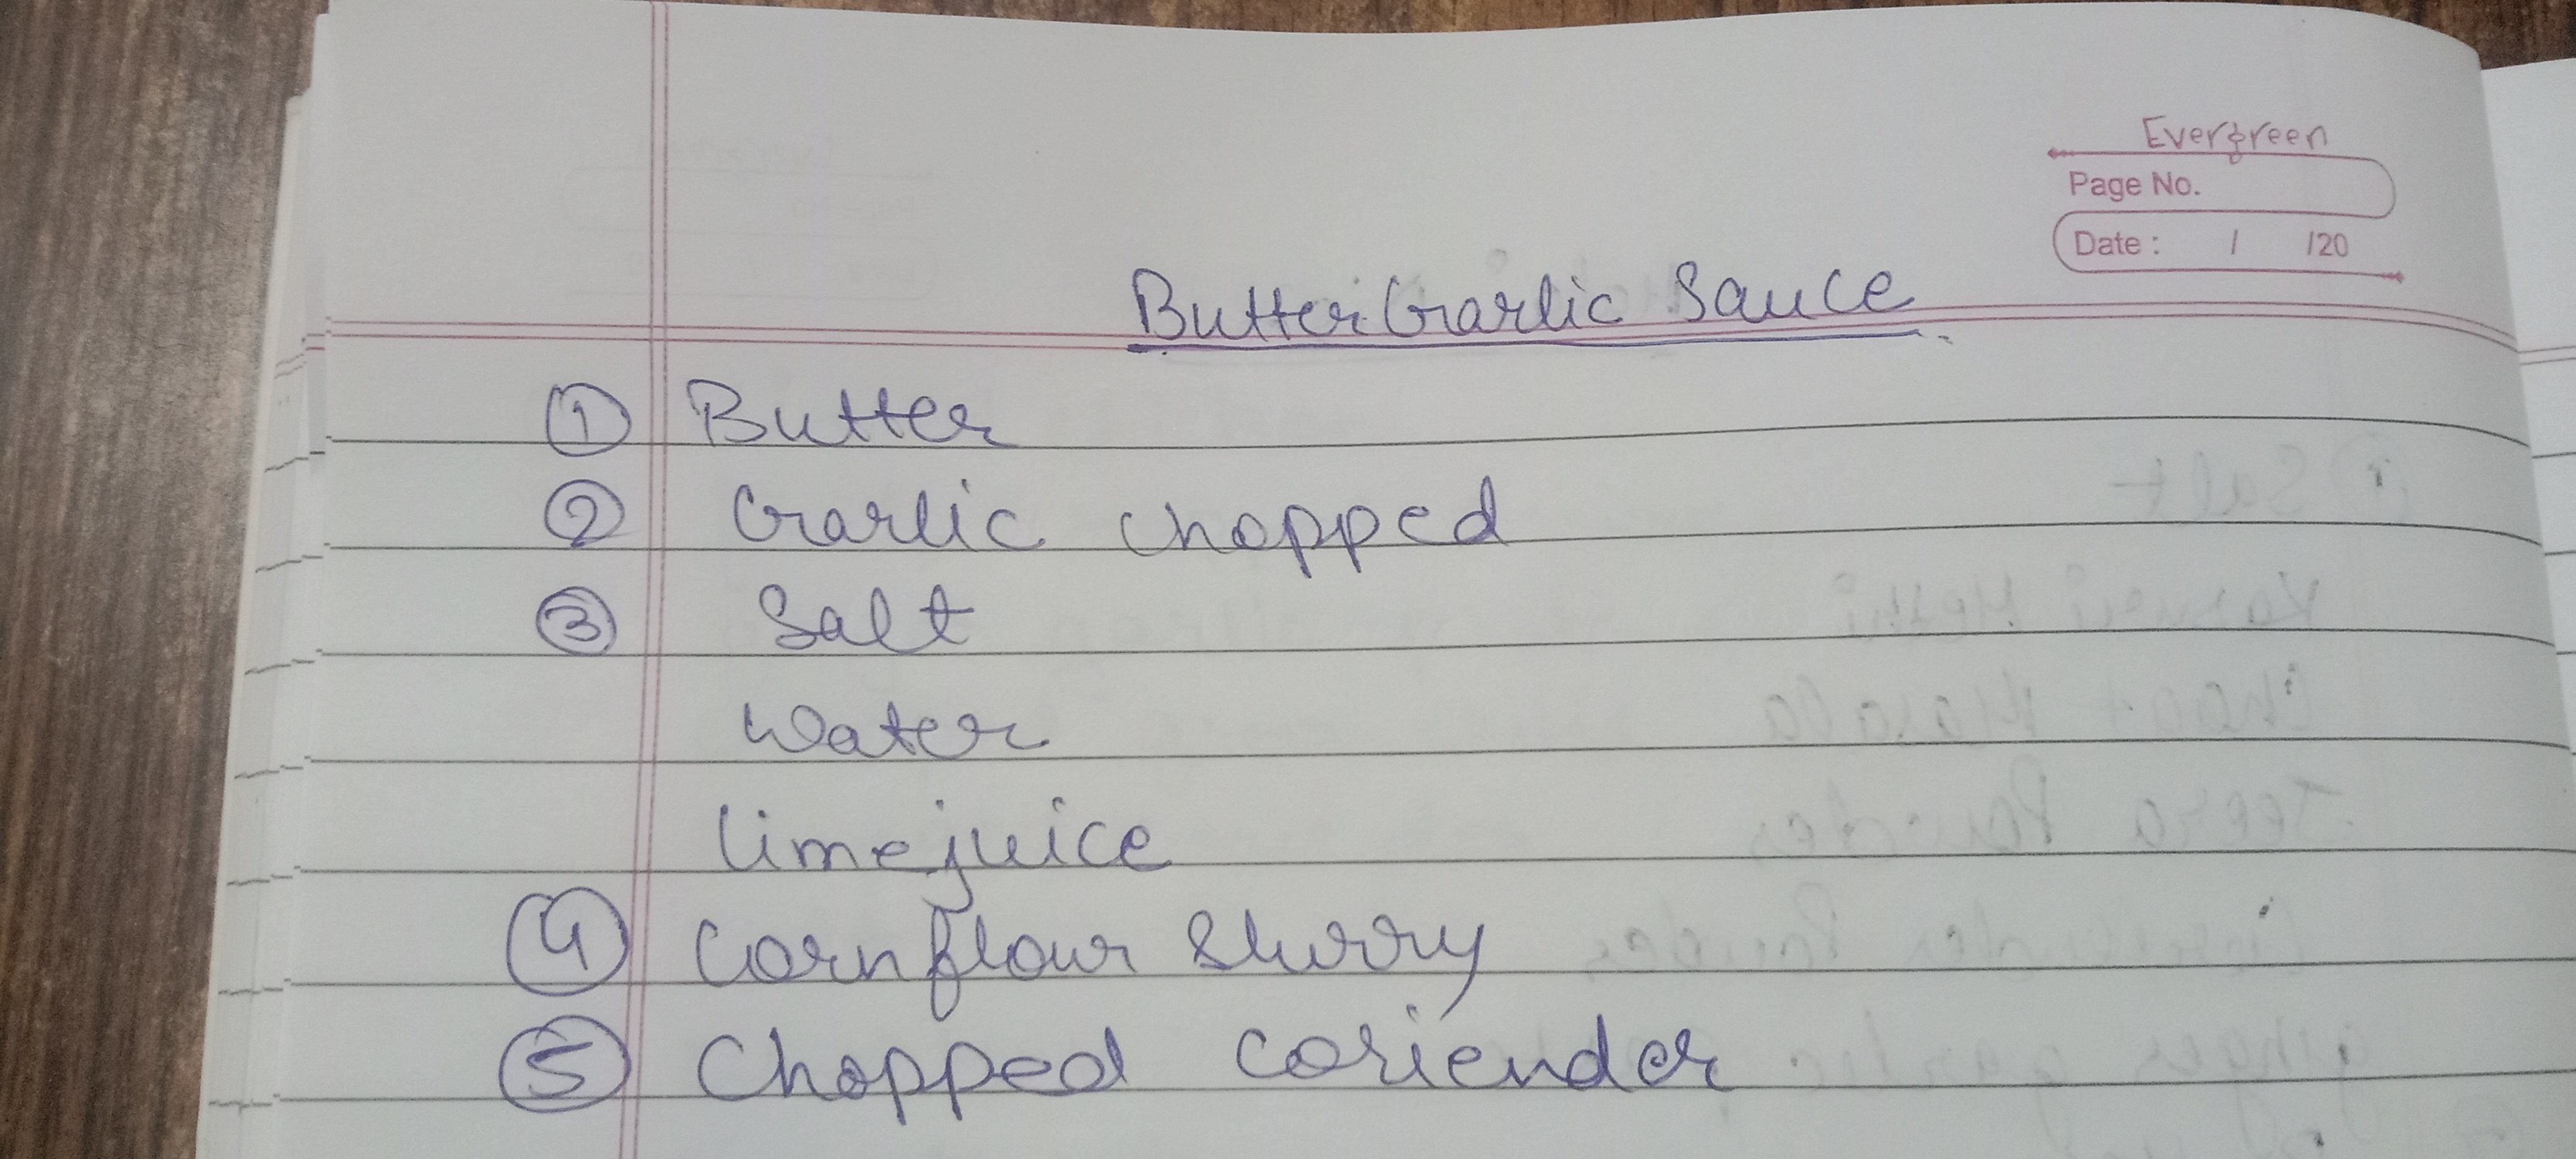 Evergreen
Page No.
Date : / /20
Butter Garlic Sauce
① Butter
② Garlic chopped
③ Salt
Water
limejuice
④ Cornflour Slurry
⑤ Chopped coriender